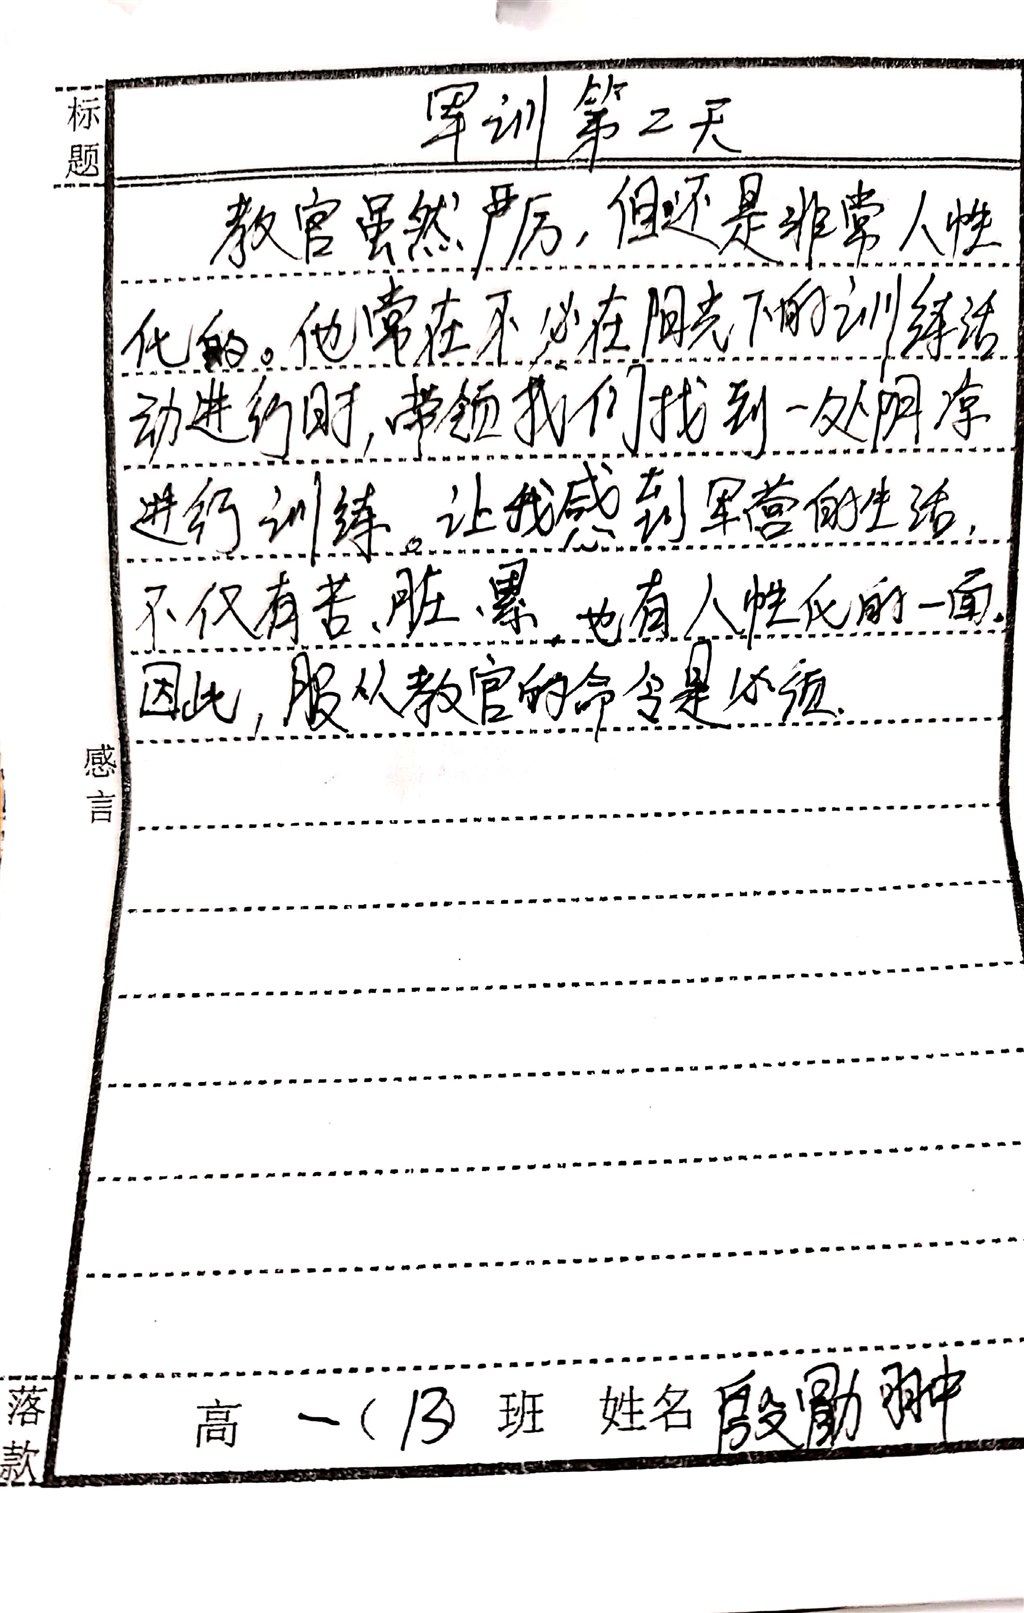 标题
军训第二天
教官虽然严厉，但还是非常人性
化的。他常在不必在阳光下的训练活
动进行时，带领我们找到一处阴凉
进行训练。让我感到军营的生活，
不仅有苦、脏、累，也有人性化的一面.
因此，服从教官的命令是必须.
感言
落款
高一（13）班 姓名 殷勤翀